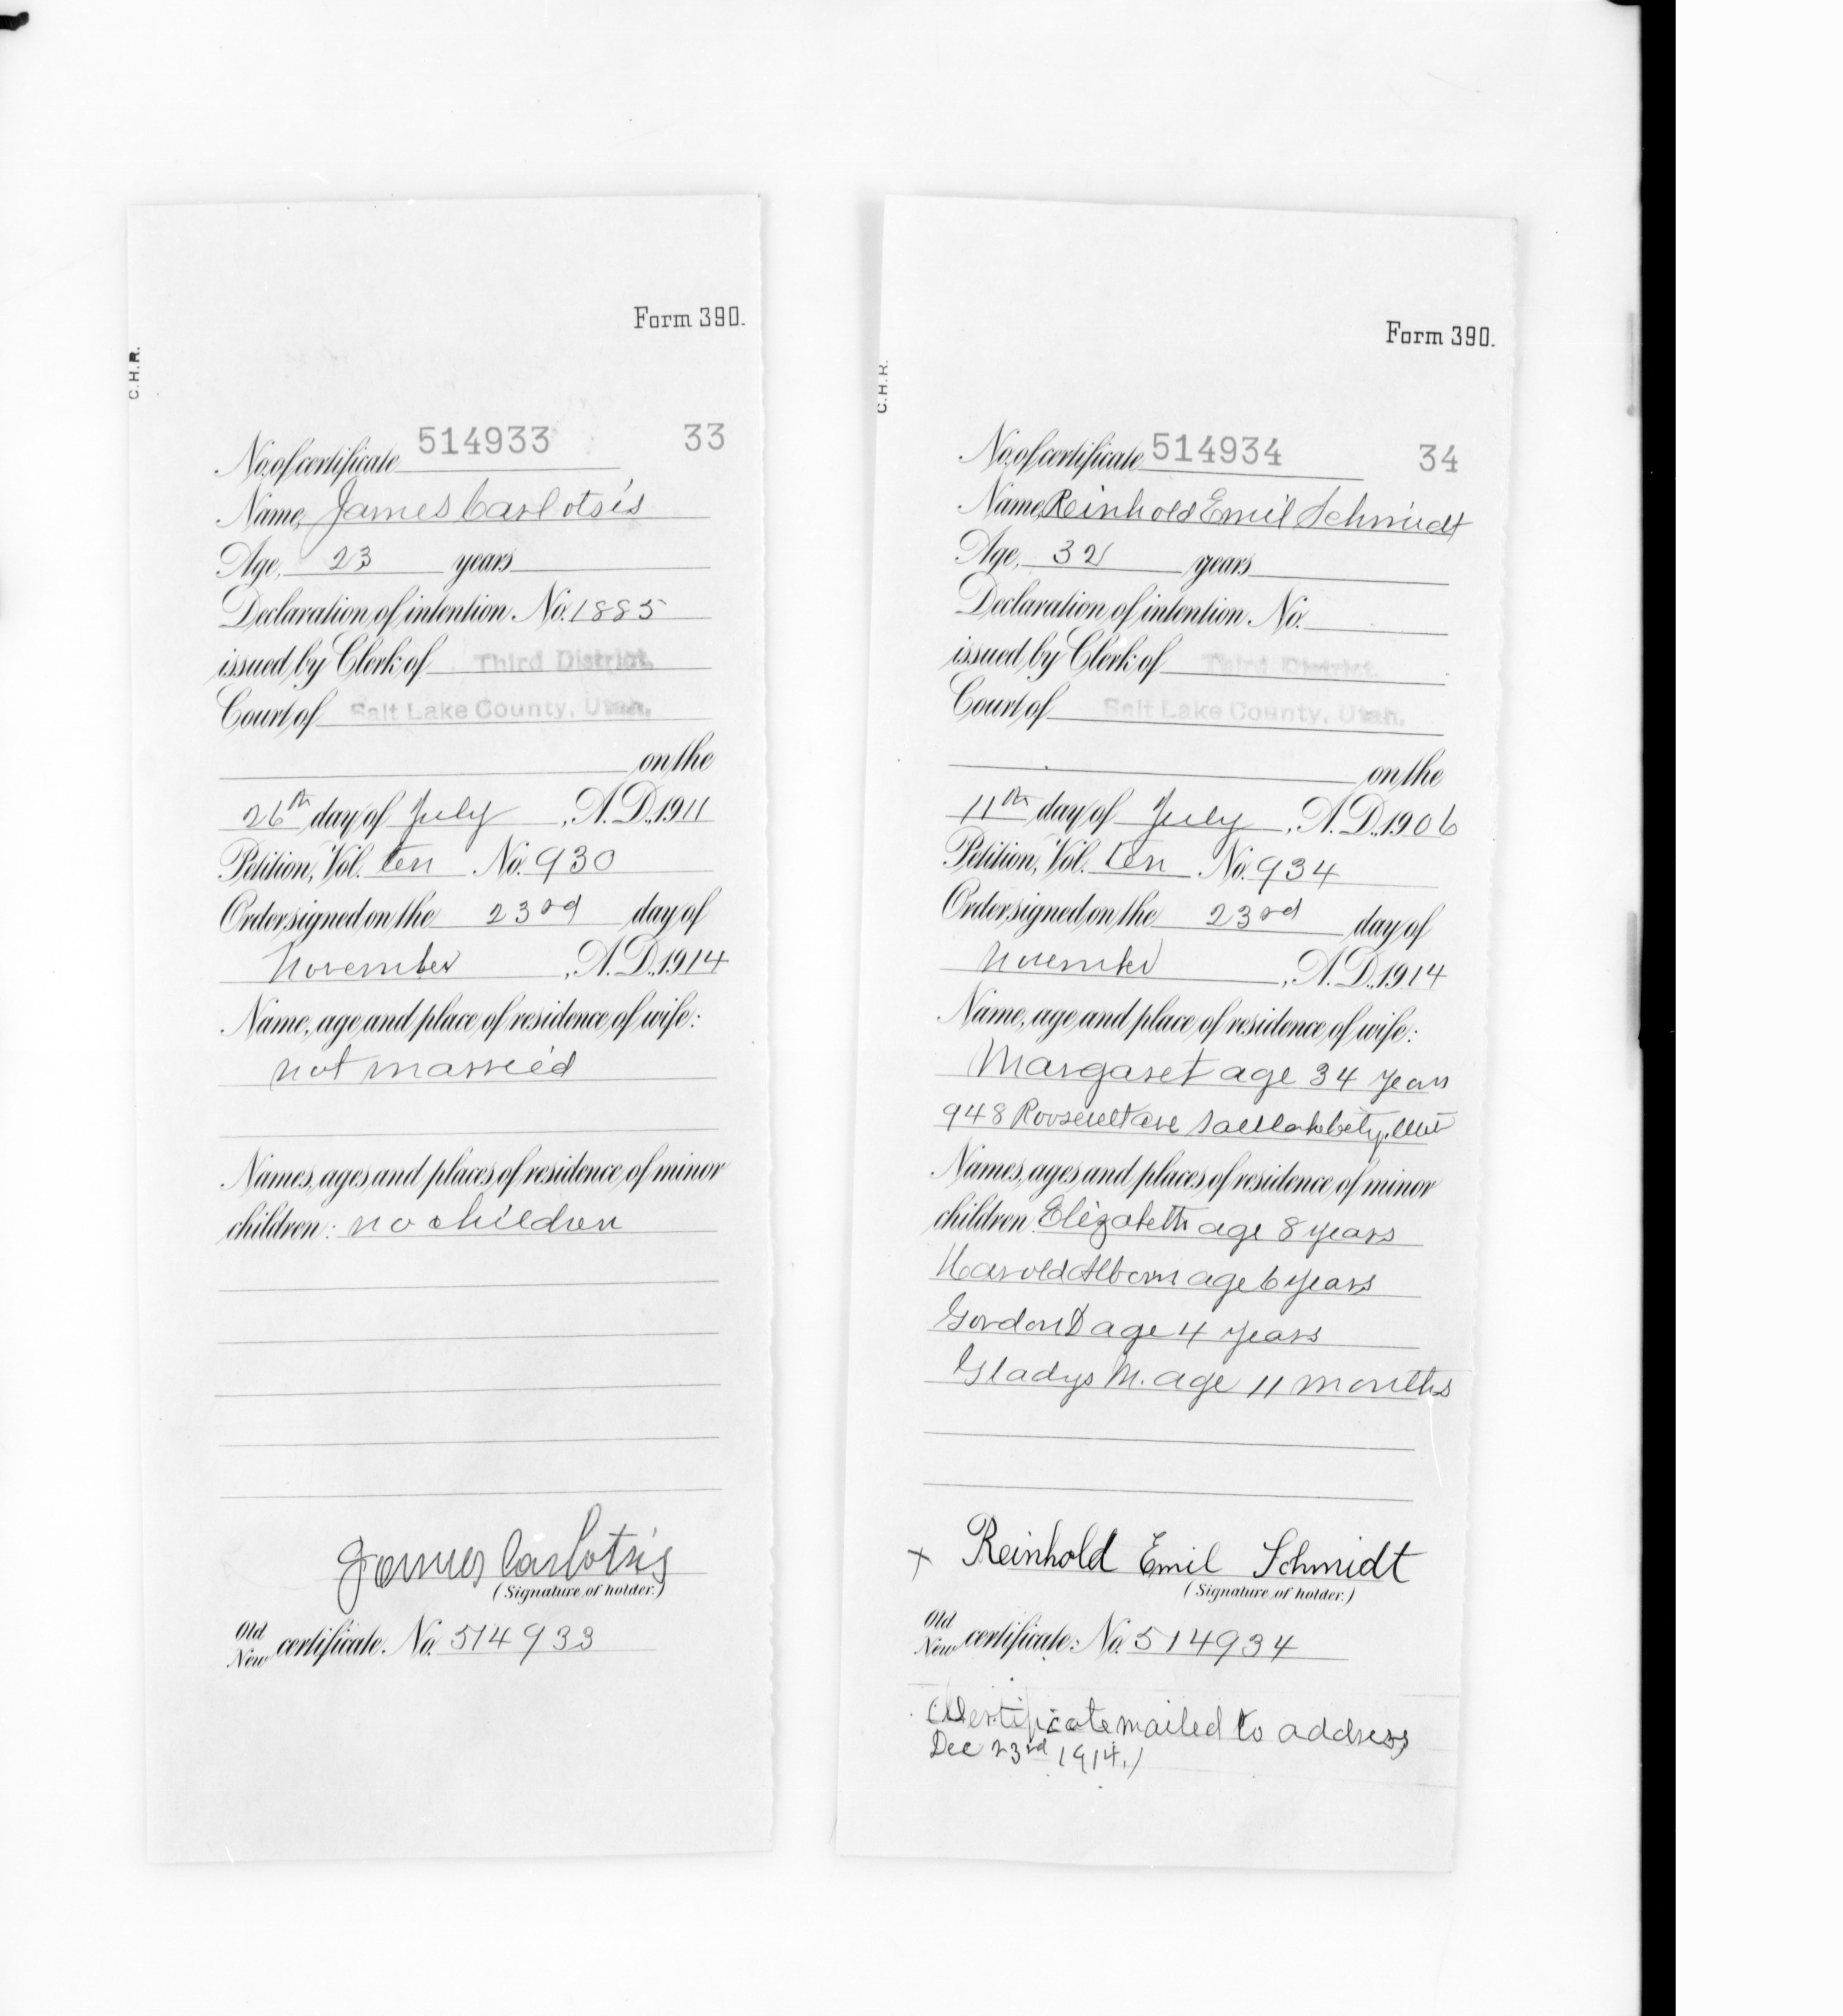 Form 390.
C.H.R.
No. of certificate 514933 33
Name, James Carlotsis
Age, 23 years
Declaration of intention No. 1885
issued by Clerk of Third District.
Court of Salt Lake County, Utah.
on the
26th day of July, A.D. 1911
Petition, Vol. ten No. 930
Order signed on the 23rd day of
November, A.D. 1914
Name, age and place of residence of wife:
not married
Names, ages and places of residence of minor
children: no children
James Carlotsis
(Signature of holder.)
Old
New certificate. No. 514933
Form 390.
C.H.R.
No. of certificate 514934 34
Name, Reinhold Emil Schmidt
Age, 32 years
Declaration of intention No.
issued by Clerk of Third District.
Court of Salt Lake County, Utah.
on the
11th day of July, A.D. 1906
Petition, Vol. ten No. 934
Order signed on the 23rd day of
November, A.D. 1914
Name, age and place of residence of wife:
Margaret age 34 years
948 Roosevelt ave Salt Lake City,
Names, ages and places of residence of minor
children Elizabeth age 8 years
Harold age 6 years
Gordon D age 4 years
Gladys M. age 11 months
x Reinhold Emil Schmidt
(Signature of holder.)
Old
New certificate: No. 514934
Certificate mailed to address
Dec 23rd 1914.)